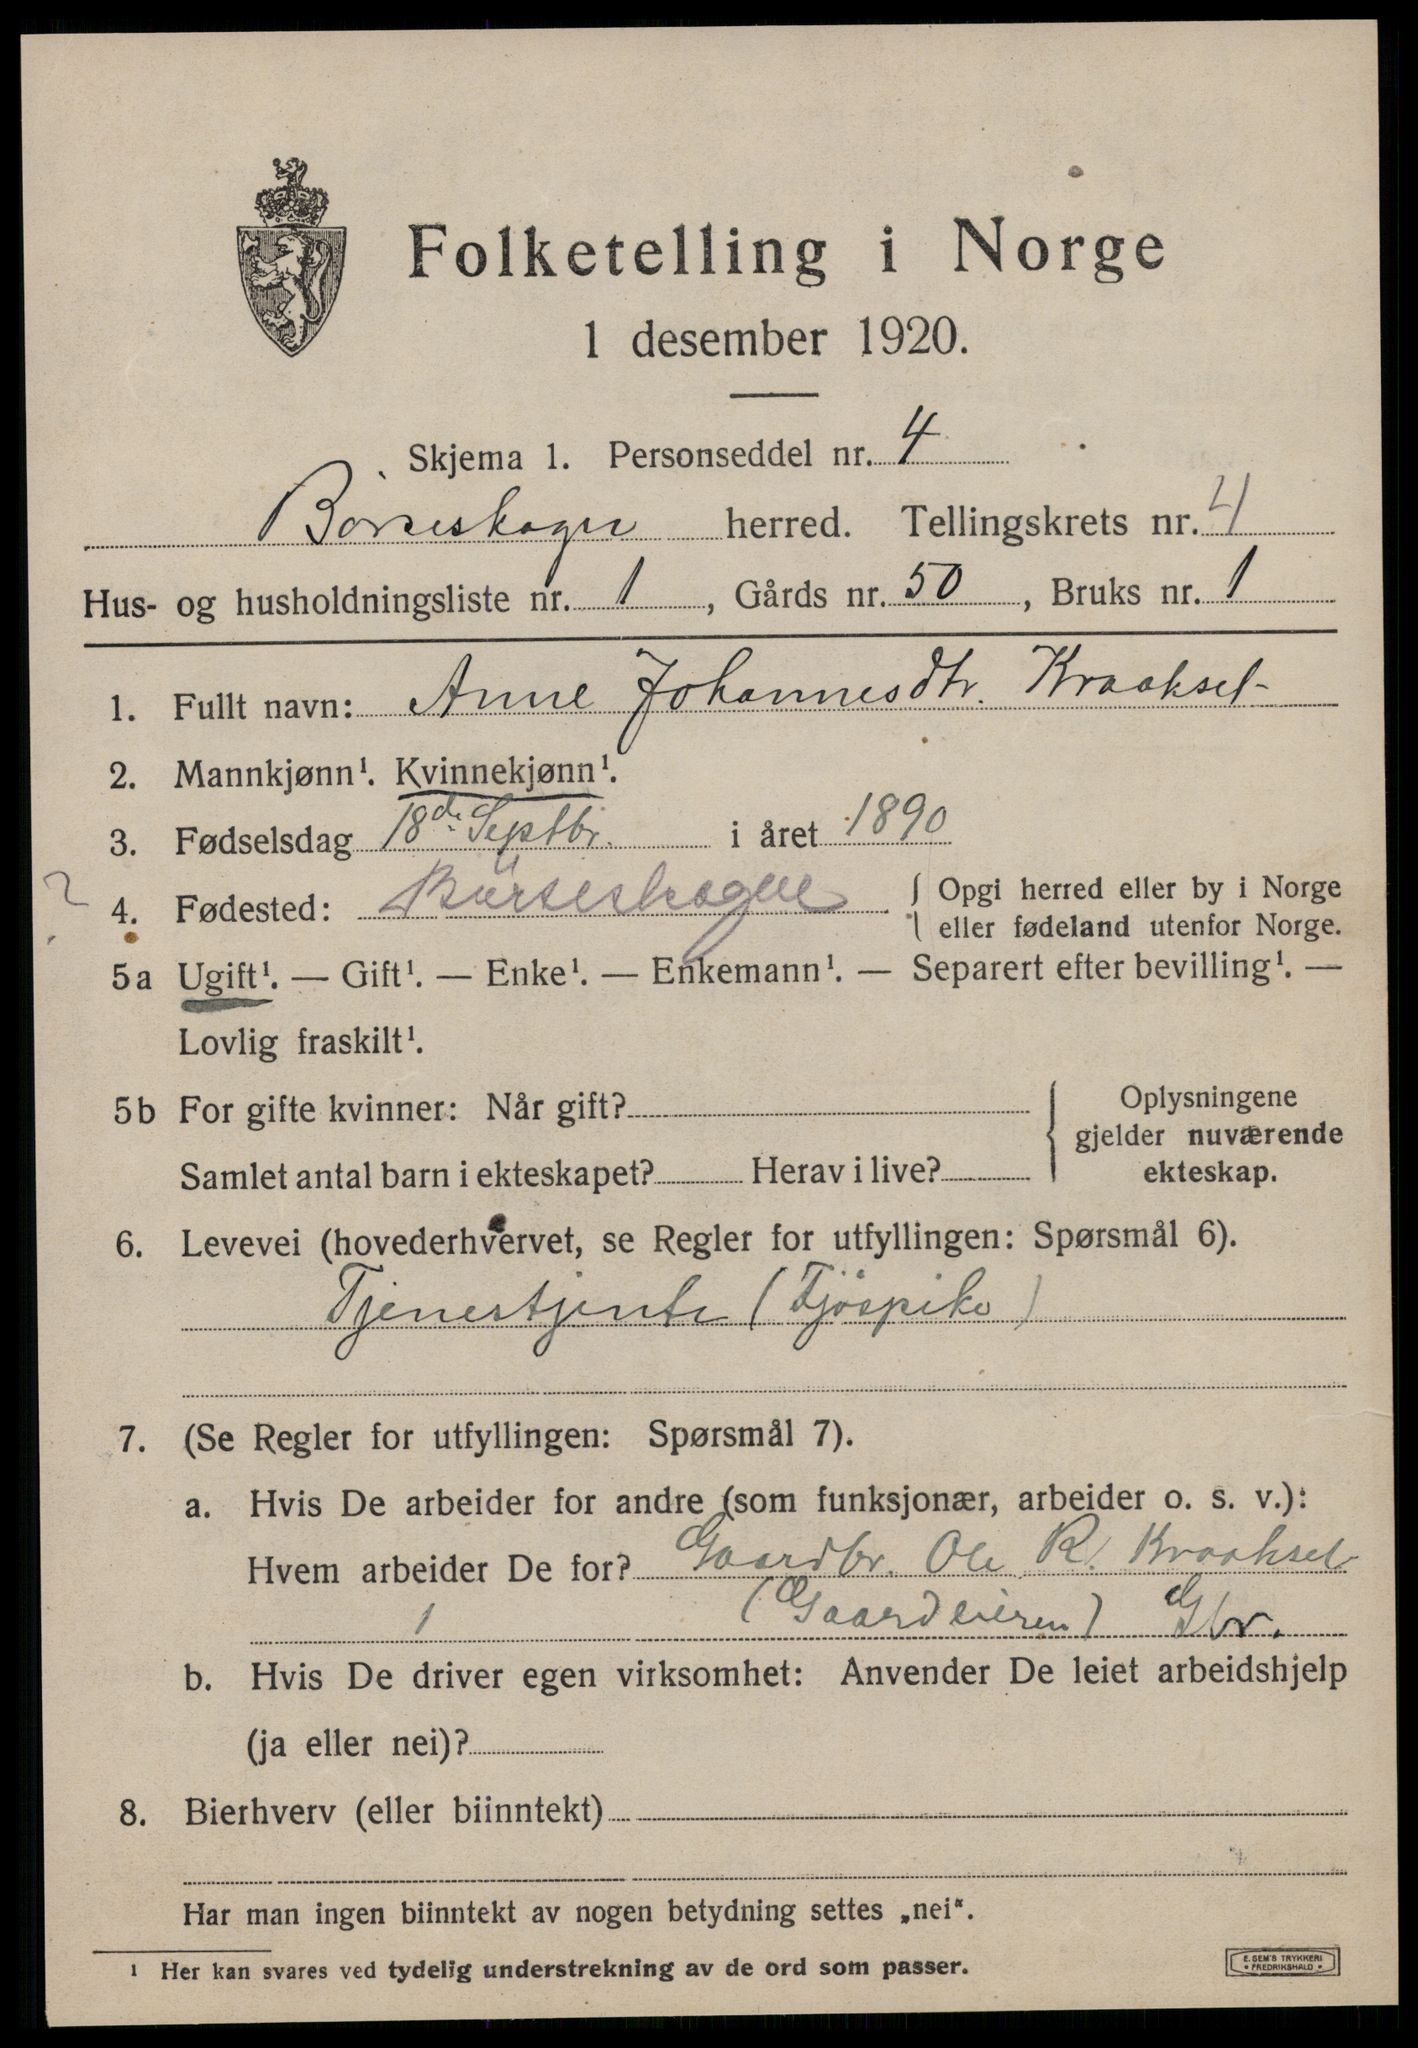 Folketelling i Norge
1 desember 1920.
Skjema 1. Personseddel nr. 4
Börseskogn herred. Tellingskrets nr. 4
Hus- og husholdningsliste nr. 1, Gårds nr. 50, Bruks nr. 1
1. Fullt navn: Anne Johannesdtr. Kraaksel
2. Mannkjønn¹. Kvinnekjønn¹.
3. Fødselsdag 18de Septbr. i året 1890
? 4. Fødested: Börseskogne { Opgi herred eller by i Norge
eller fødeland utenfor Norge.
5a Ugift¹. — Gift¹. — Enke¹. — Enkemann¹. — Separert efter bevilling¹. —
Lovlig fraskilt¹.
5b For gifte kvinner: Når gift? { Oplysningene
gjelder nuværende
Samlet antal barn i ekteskapet? Herav i live? ekteskap.
6. Levevei (hovederhvervet, se Regler for utfyllingen: Spørsmål 6).
Tjenestjente (Fjöspike)
7. (Se Regler for utfyllingen: Spørsmål 7).
a. Hvis De arbeider for andre (som funksjonær, arbeider o. s. v.):
Hvem arbeider De for? Gaardbr. Ole R. Kraaksel
1 (Gaardeieren) Gbr.
b. Hvis De driver egen virksomhet: Anvender De leiet arbeidshjelp
(ja eller nei)?
8. Bierhverv (eller biinntekt)
Har man ingen biinntekt av nogen betydning settes „nei".
¹ Her kan svares ved tydelig understrekning av de ord som passer.
E. SEM'S TRYKKERI
• FREDRIKSHALD •